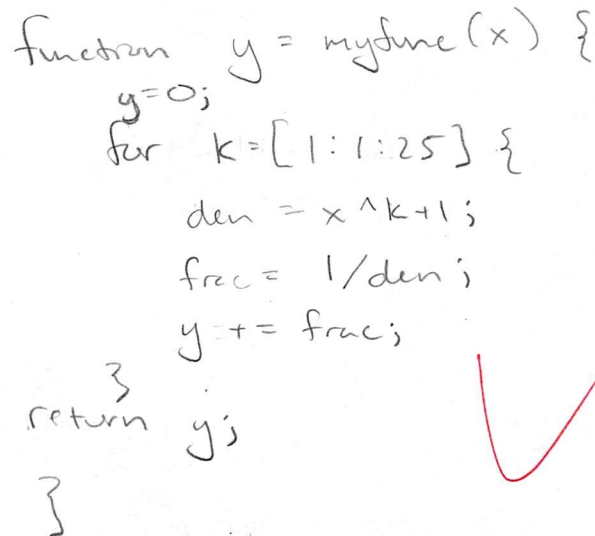 function y = myfunc(x) {
y=0;
for k=[1:1:25] {
den = x^k+1;
frac = 1/den;
y += frac;
}
return y;
}